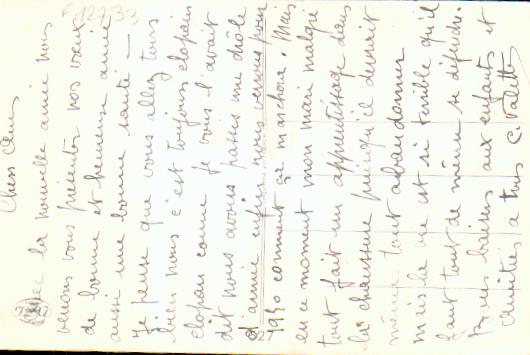 Chers Amis
Avec la nouvelle année nous
venons vous présenter nos vœux
de bonne et heureuse année
aussi une bonne santé —
Je pense que vous allez tous
bien nous c'est toujours clopin
clopan comme je vous l'avait
dit nous avons passés une drôle
d'année enfin nous verrons pour
1940 comment sa marchera. Mais
en ce moment mon mari malgré
tout fait un apprentissage dans
la chaussure puisqu'il devrait
même tout abandonner
mais la vie est si terrible qu'il
faut tout de même se défendre.
Bons baisers aux enfants et
amitiés a tous C Valette